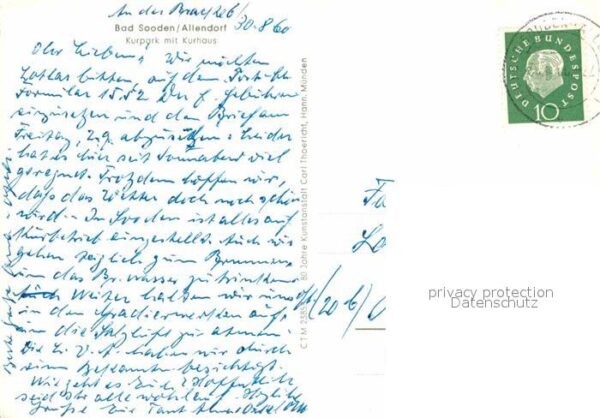 An der Brück 6/
30.8.60
Bad Sooden/Allendorf
Kurpark mit Kurhaus
Ihr Lieben, Wir möchten
Lothar bitten, auf dem
Formular 15.52 DM f.
einzusetzen und den Brief am
Freitag, 2.9. abzusetzen. Leider
hat es hier seit Sonnabend viel
geregnet. Trotzdem hoffen wir,
daß das Wetter doch noch schön
wird. In Sooden ist alles auf
Kurbetrieb eingestellt. Auch wir
gehen täglich zum Brunnen,
um das Br.wasser zu trinken.
Weiter halten wir uns
in den Gradierwerken auf,
um die Salzluft zu atmen.
Die haben wir durch
einen Bekannten besichtigt.
Wie geht es Euch? Hoffentlich
seid Ihr alle wohlauf. Herzliche
Grüße Eure Tante Onkel
80 Jahre Kunstanstalt Carl Thoericht, Hann. Münden
DEUTSCHE BUNDESPOST
10
(20 b)
privacy protection
Datenschutz